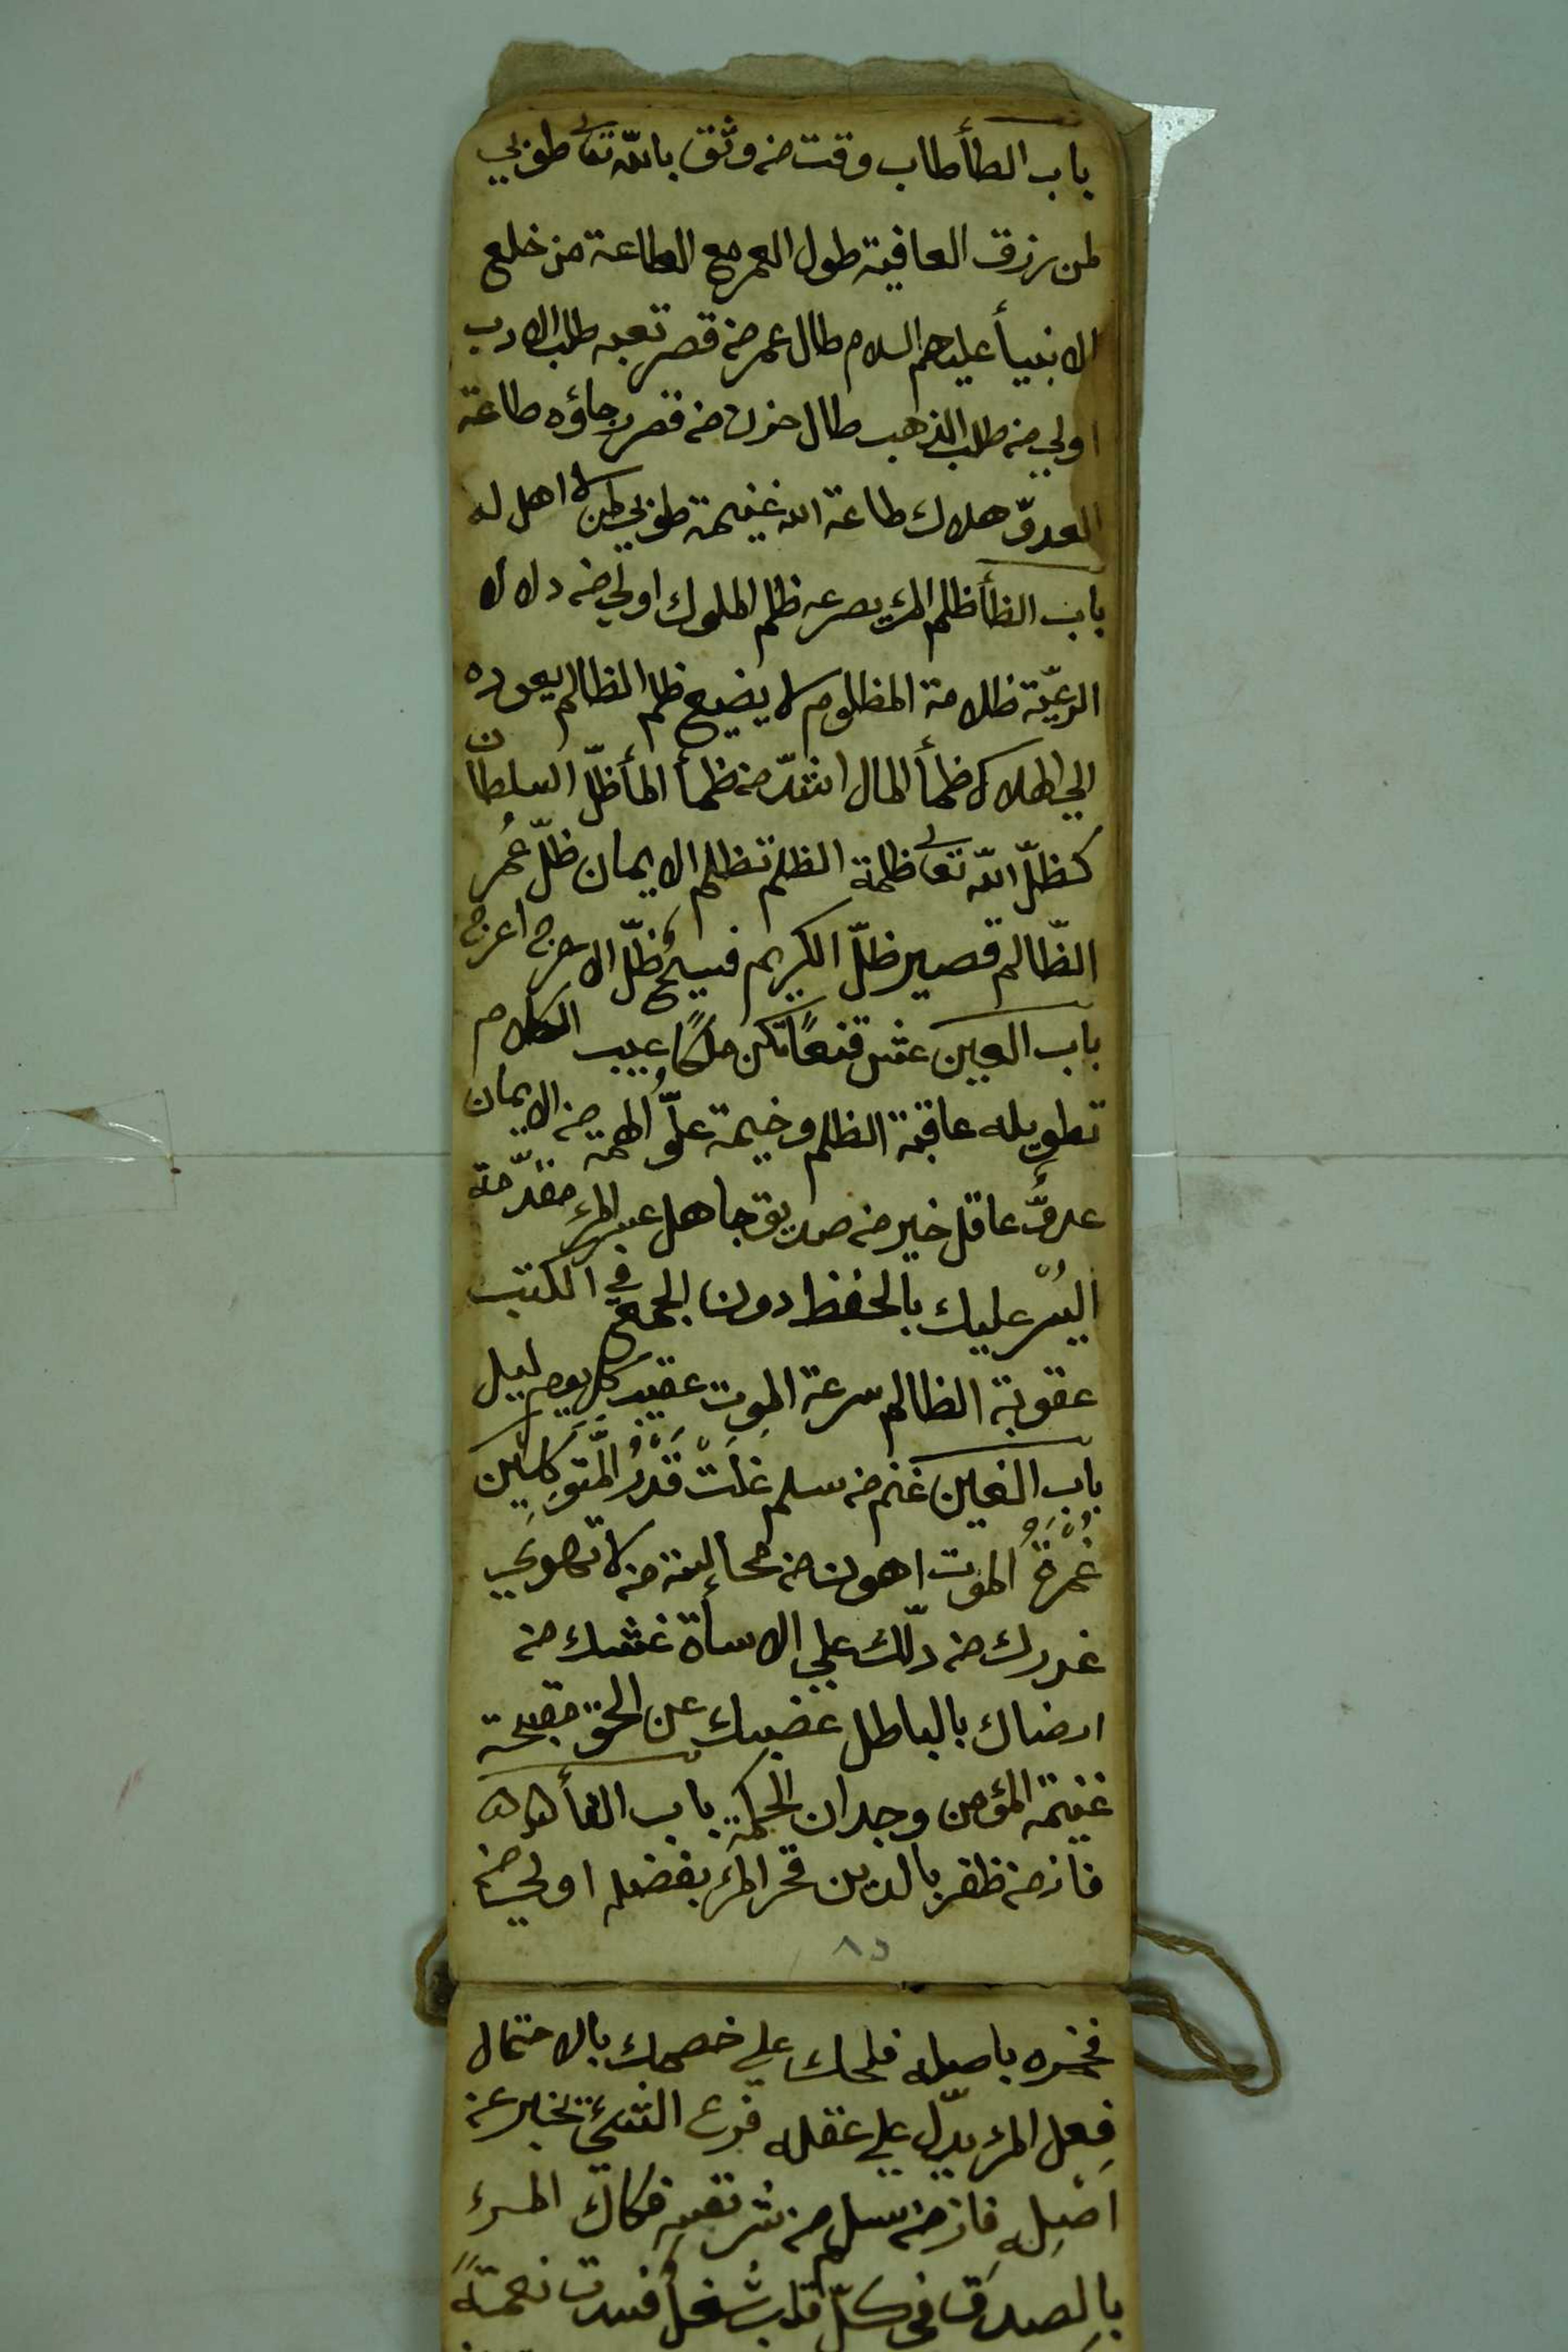 باب الطأ طاب وقت من وثق بالله تعالى طوبي
لمن رزق العافية طول العمر مع الطاعة من خلع
الانبيأ عليهم السلام طال عمر من قصر تعبه طلب الادب
اولي من طلب الذهب طال حزن من قصر رجاؤه طاعة
العدوّ هلاك طاعة الله غنيمة طوبي لمن لا اهل له
باب الظأ ظلم المرء يصرعه ظلم الملوك اولي من دلال
الرعيّة ظلامة المظلوم لا يضيع ظلم الظالم يعوده
الي الهلاك ظمأ المال اشدّ من ظمأ المأ ظلّ السلطان
كظلّ الله تعالى ظلمة الظلم تظلم الايمان ظلّ عُمر
الظّالم قصير ظلّ الكريم فسيحُ ظلّ الاعرج اعرج
باب العين عش قنعًا تكن ملكًا عيب الكلام
تطويله عاقبة الظلم وخيمة علوُّ الهمة من الايمان
عدوٌّ عاقل خير من صديق جاهل عسر المرء مقدّمة
اليُسْر عليك بالحفظ دون الجمع في الكتب
عقوبة الظالم سرعة الموت عقيب كل يوم ليل
باب الغين غنم من سلم غلَتْ قَدْرُ المتّوَكِلين
غُمْرَةُ الموت اهون من مجالسة من لا تهوي
غدرك من دلّك علي الاسأة غشك من
ارضاك بالباطل غضبك عن الحق مقبحة
غنيمة المؤمن وجدان الحكمة باب الفأ ۵۵
فاز من ظفر بالدين فخر المرء بفضله اولي من
٨٥
فخره باصله فلحك علي خصمك بالاحتمال
فِعل المرء يدّل علي عقله فرع الشئ يخبر عن
اصْلِه فاز من سلم من شر نفسِه فكاك المرء
بالصدق في كلّ قلب شُغلٌ فسدت نعمةً